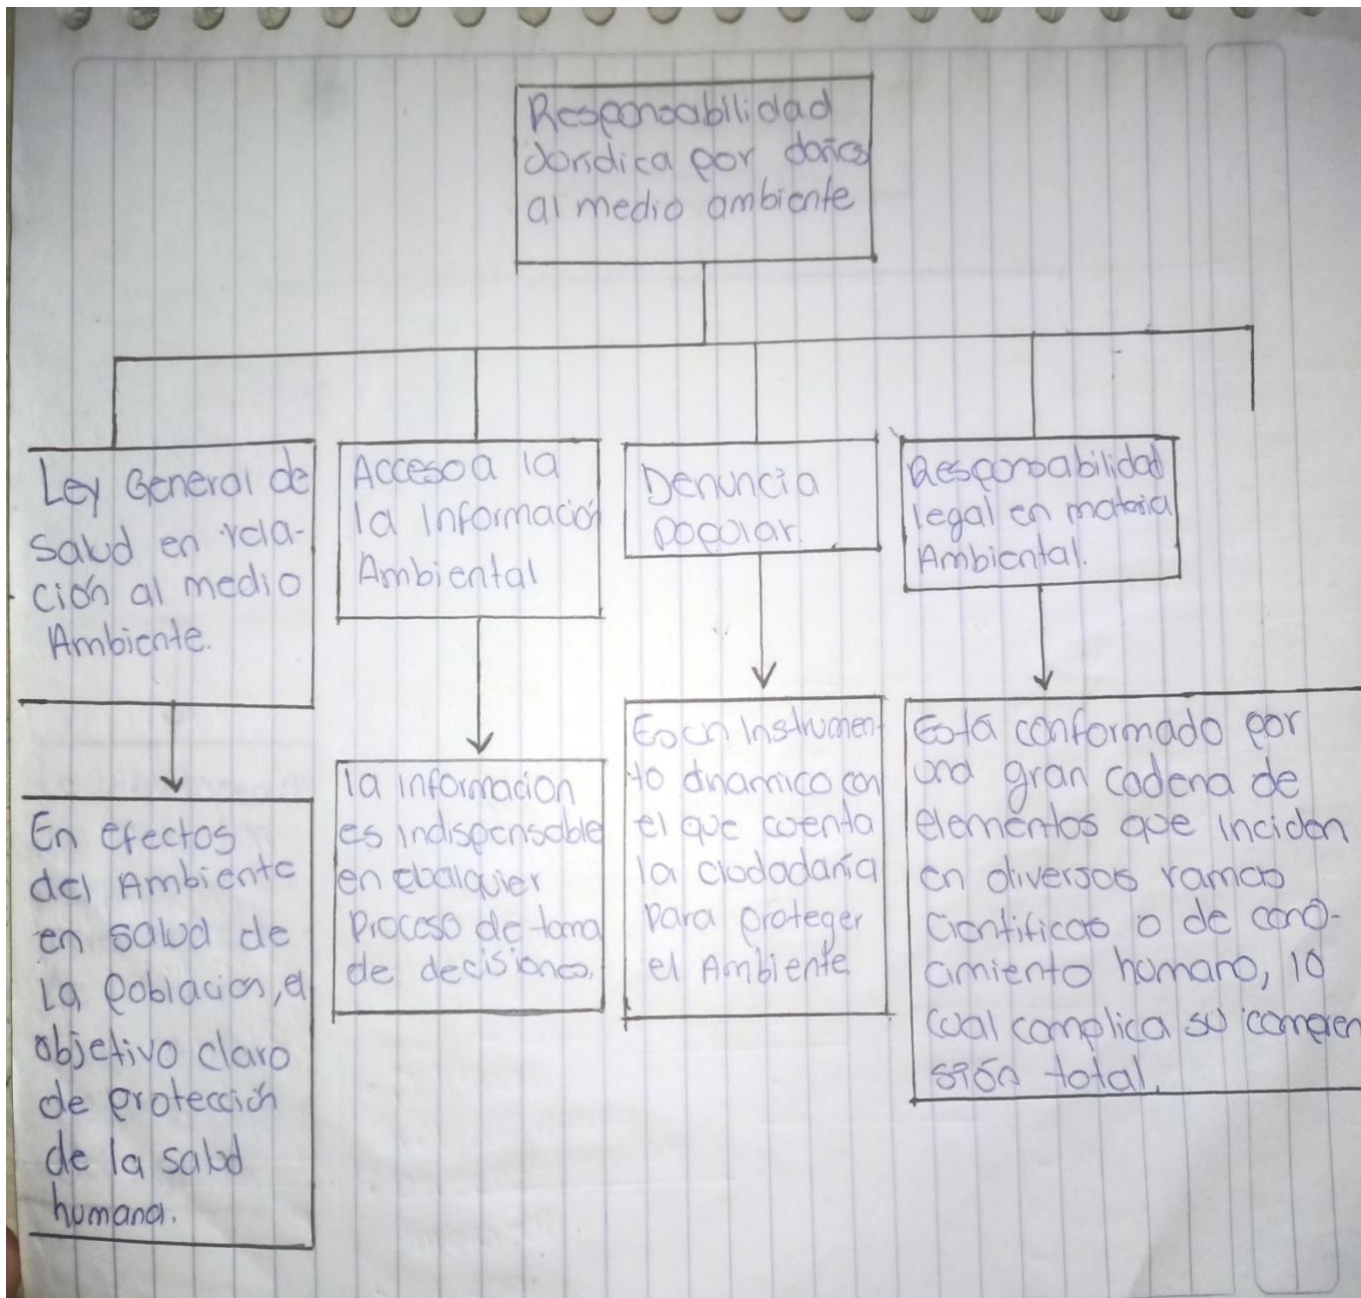 Responsabilidad
Jurídica por daños
al medio ambiente
Ley General de
salud en rela-
ción al medio
Ambiente.
Acceso a la
la Información
Ambiental
Denuncia
popular.
Responsabilidad
legal en materia
Ambiental.
En efectos
del Ambiente
en salud de
la población, el
objetivo claro
de protección
de la salud
humana.
la informacion
es indispensable
en cualquier
proceso de toma
de decisiones.
Es un Instrumen-
to dinamico con
el que cuenta
la ciudadanía
para proteger
el Ambiente
Está conformado por
una gran cadena de
elementos que inciden
en diversos ramas
cientificas o de cono-
amiento humano, lo
cual complica su compren
sión total.